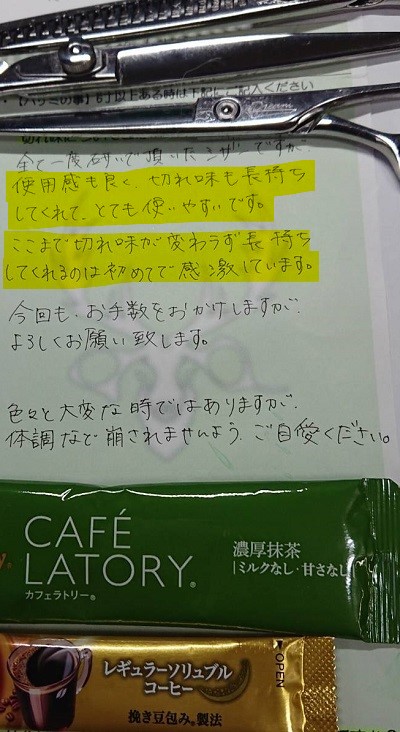 【ハサミの事】6丁以上ある時は下記にご記入ください
全て一度研いで頂いたシザーですが、
使用感も良く、切れ味も長持ち
してくれて、とても使いやすいです。
ここまで切れ味が変わらず長持ち
してくれるのは初めてで感激しています。
今回も、お手数をおかけしますが、
よろしくお願い致します。
色々と大変な時ではありますが、
体調など崩されませんよう、ご自愛ください。
CAFÉ
LATORY®
カフェラトリー®
濃厚抹茶
ミルクなし・甘さなし
レギュラーソリュブル
コーヒー
挽き豆包み®製法
OPEN